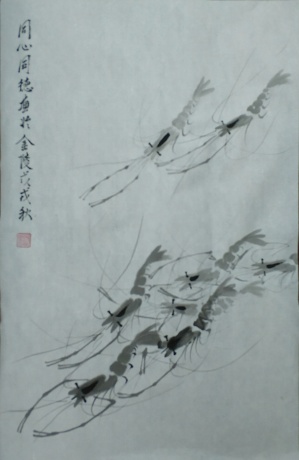 同心同德画於金陵戊戌秋